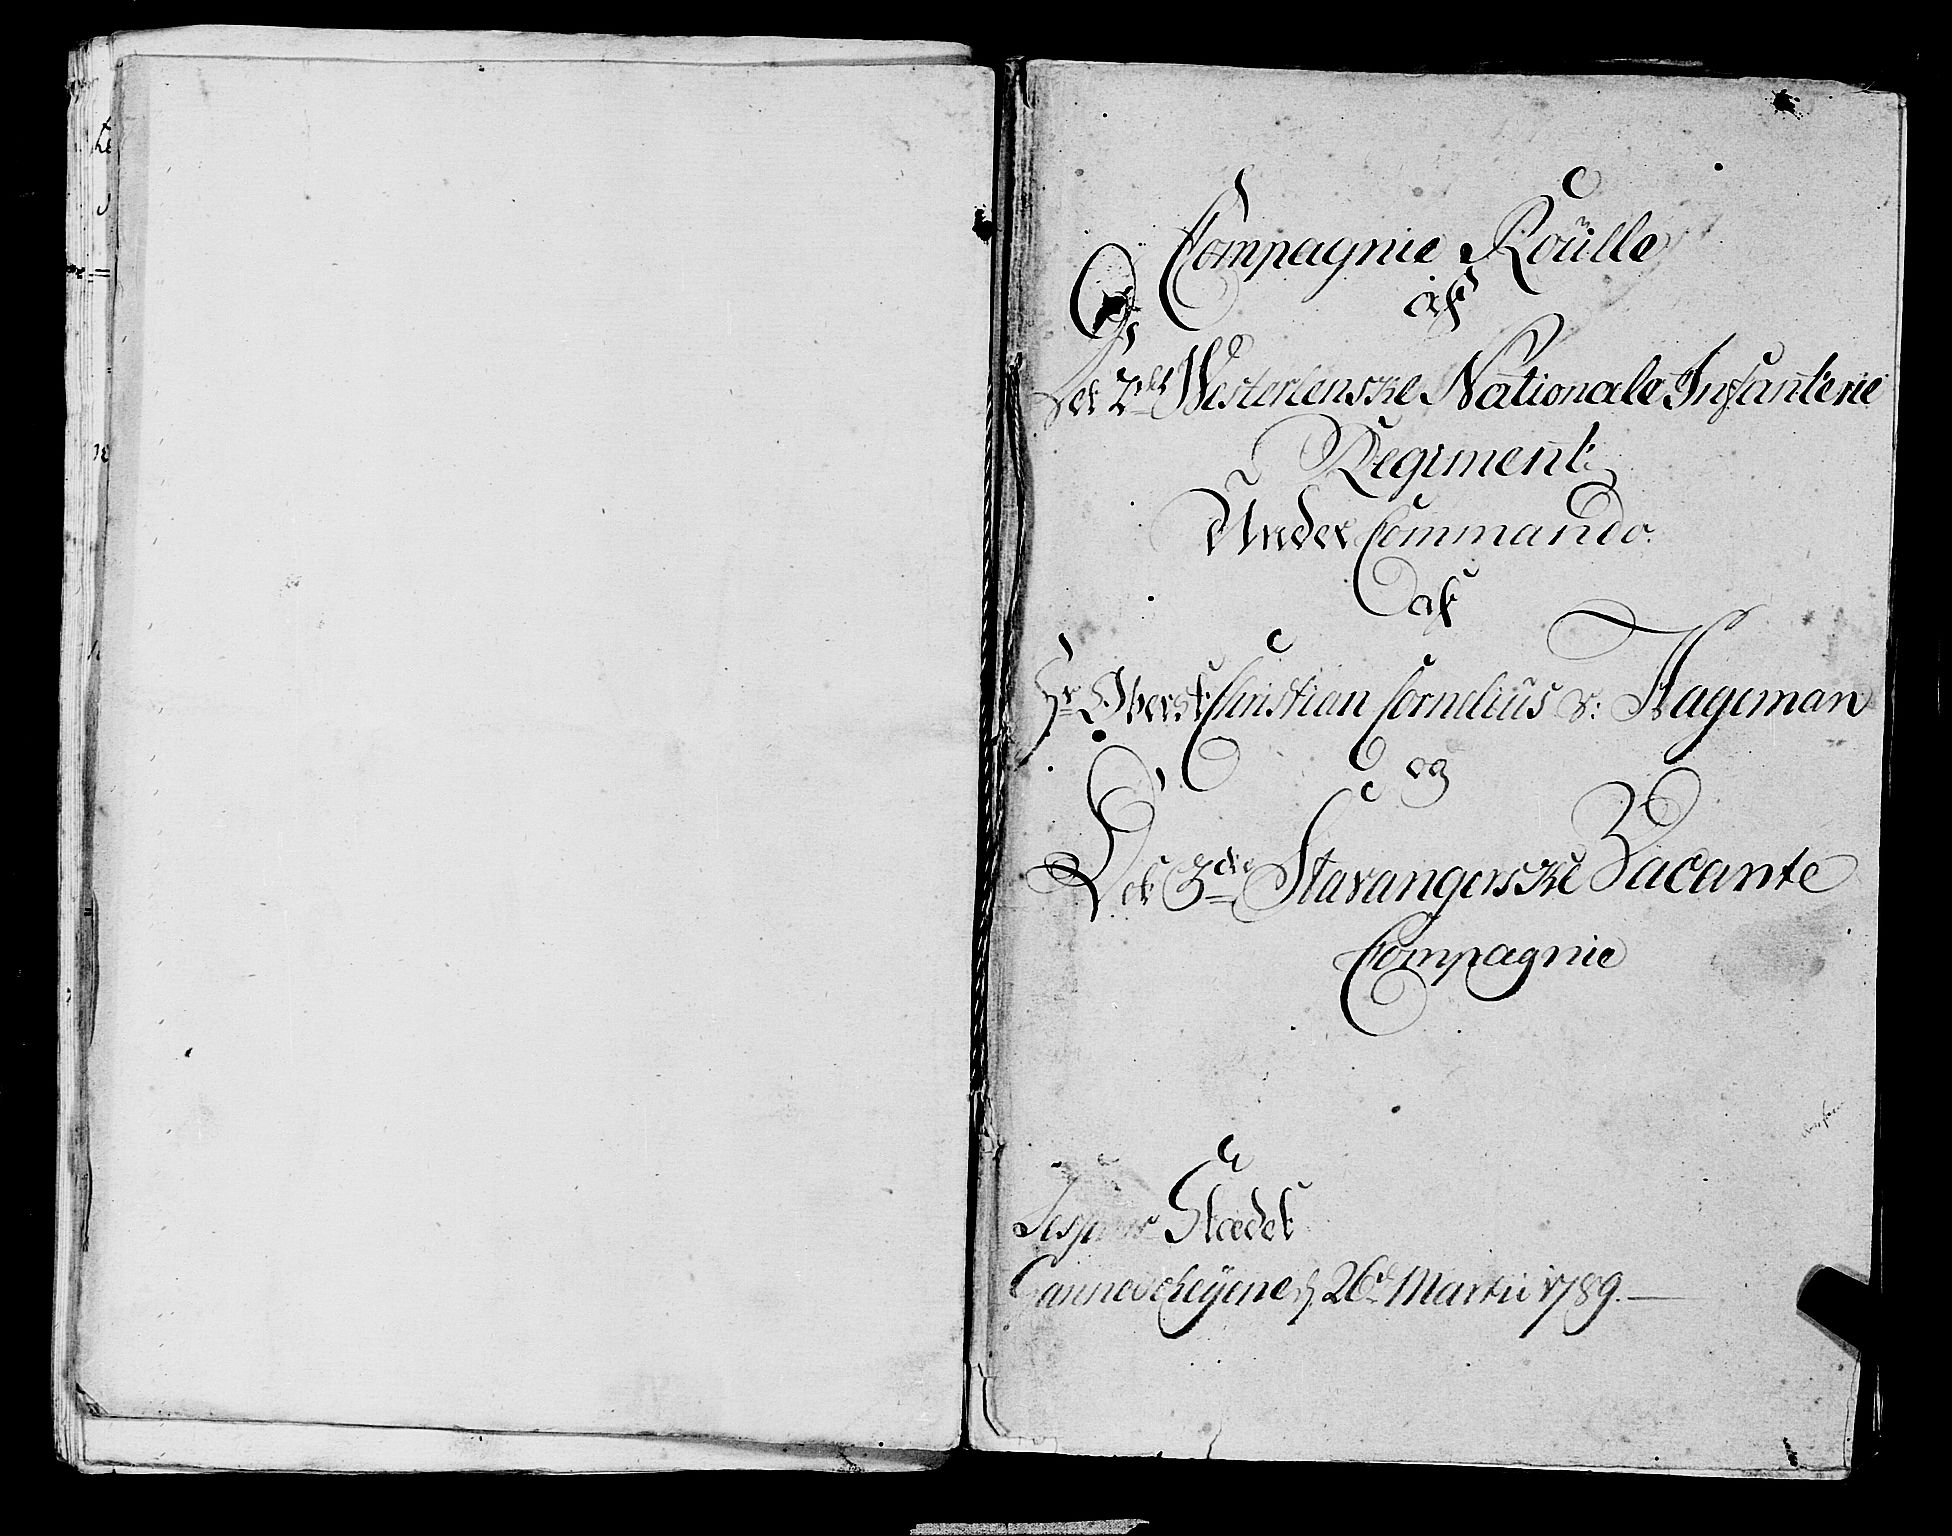 Compagnie Roülle
af
Det 2det Westerlenske Nationale Infanterie
Regiment
Under Commando
af
Hr Oberst Christian Cornelius v: Hageman
og
Det 3die Stavangerske Vacante
Compagnie
Stædet
d 26de Martii 1789.